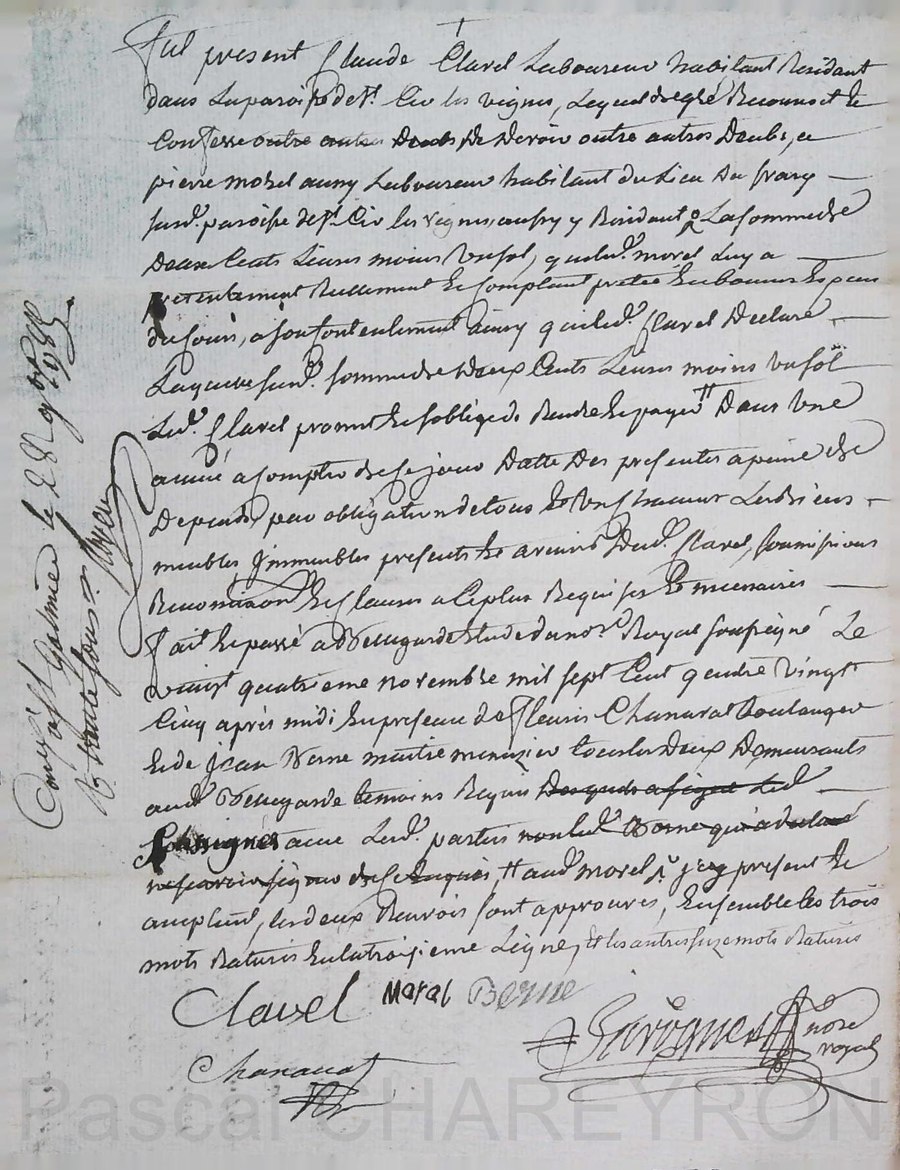 fut present Claude Clavel Laboureur habitant Residant
dans La paroisse de st. Cir les vignes, Lequel de gré Reconnoit et
Confesse outre autres Deubs, De Devoir outre autres Deubs, a
pierre morel aussy Laboureur habitant du Lieu du
susd. paroisse de st. Cir les vignes aussy y Residant La somme de
Deux Cents Livres moins un sol, que led. morel Luy a
presentement Reellement et Comptant preté en bonnes Especes
du Cours, a son Contentement ainsy que led. Clavel Declare
Laquelle susd. somme de Deux Cents Livres moins un sol
Led. Clavel promet et s'oblige de Rendre et payer Dans Une
année a Compter de Ce jour Datte Des presentes a peine de
Depends, par obligation de tous et Un Chacuns Ses Biens
meubles immeubles presents et avenirs Dud. Clavel, soumissions
Renonciations et Clauses a Ce plus Requises et necessaires
fait et passé a Bellegarde Etude du nore. Royal soussigné Le
vingt quatreme novembre mil sept Cent quatre vingt
Cinq après midi En presence de fleuris Chanavat Boulanger
et de jean Berne maitre menuzier tous les Deux Demeurants
aud. Bellegarde temoins Requis Lesquels ont signé Led.
soussignés avec Les d. parties non led. Berne qui a declaré
ne scavoir signer de Ce Enquis, tt aud. morel present et
acceptant, les deux Renvois sont approuvés, Ensemble les trois
mots Raturés En la troisieme Ligne, Et les autres seze mots Raturés
Clavel Maral Berne
Chanavat
nore
royal
Con. a st Galmier le 28 9bre 1785
R. trente sous
Pascal CHAREYRON